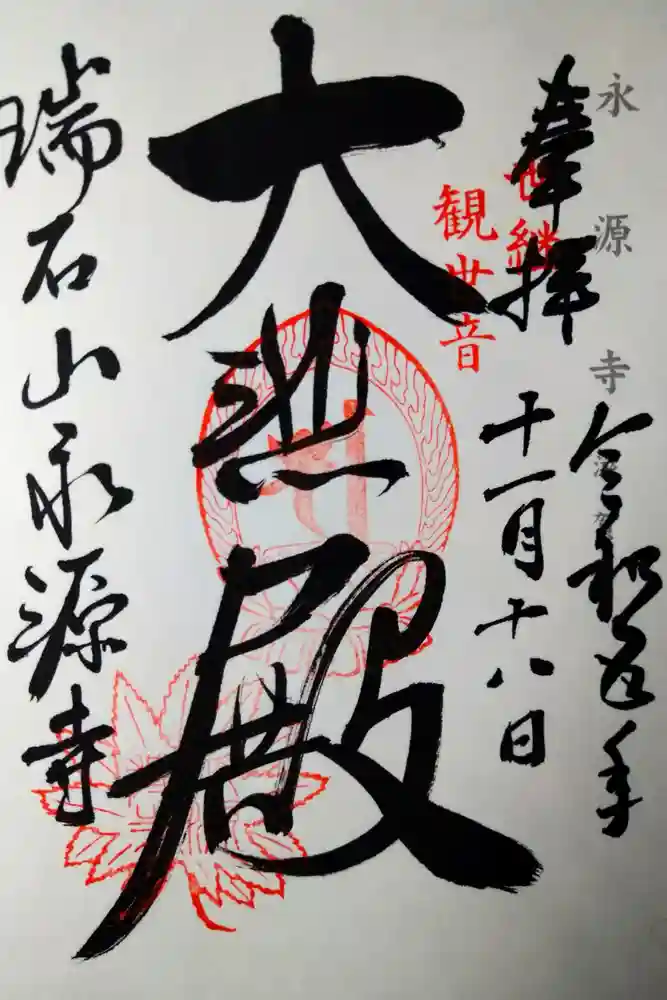 永源寺
令和五年
奉拝
十一月十八日
世継
観世音
大悲殿
瑞石山永源寺